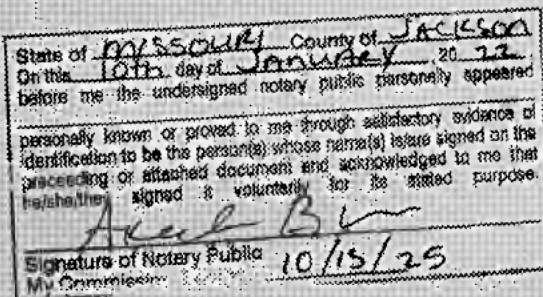 State of MISSOURI County of JACKSON
On this 10th day of JANUARY, 20 22
before me the undersigned notary public personally appeared
personally known or proved to me through satisfactory evidence of
identification to be the person(s) whose name(s) is/are signed on the
preceeding or attached document and acknowledged to me that
he/she/they signed it voluntarily for its stated purpose.
Signature of Notary Public 10/15/25
My Commission